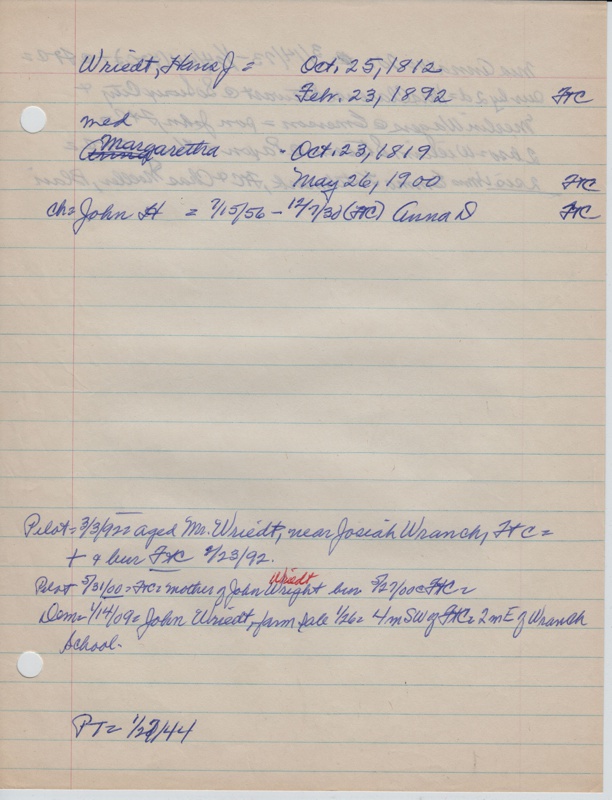 Wriedt, Hans J = Oct. 25, 1812
Feb. 23, 1892 FtC
med
Anna Margaretha - Oct. 23, 1819
May 26, 1900 FtC
ch = John H = 7/15/56 - 12/7/30 (FtC) Anna D FtC
Pilot = 3/3/92 = aged Mr. Wriedt, near Josiah Wranch, FtC =
+ & bur FtC 2/23/92.
Pilot 5/31/00 = FtC = mother of John Wright Wriedt bur 5/27/00 @ FtC =
Dem = 1/14/09 = John Wriedt, farm sale 1/26 = 4 m SW of FtC = 2 m E of Wranch
School.
PT = 1/27/44